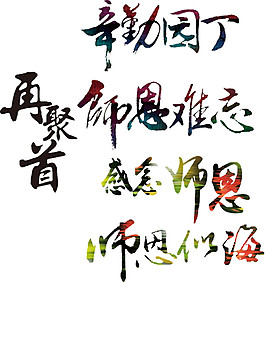 辛勤园丁
師恩难忘
感念师恩
师恩似海
再聚首